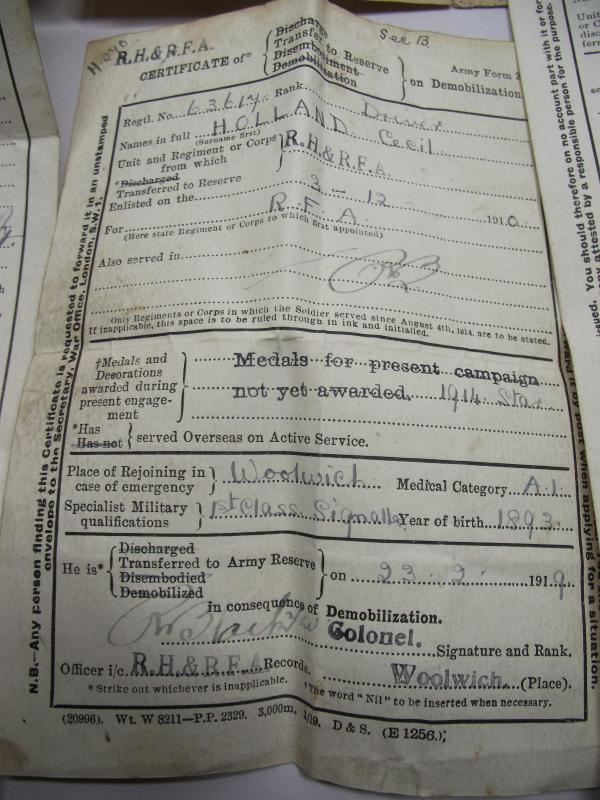 R.H.& R.F.A.
See B.
CERTIFICATE of* { Discharge Transfer to Reserve Disembodiment Demobilization } on Demobilization.
Army Form Z
Regtl. No. 63614 Rank Driver
Names in full HOLLAND Cecil
(Surname first)
Unit and Regiment or Corps from which } R.H.& R.F.A.
*Discharged
Transferred to Reserve
Enlisted on the 3 - 12 1910
For R.F.A.
(Here state Regiment or Corps to which first appointed)
Also served in
Only Regiments or Corps in which the Soldier served since August 4th, 1914, are to be stated.
If inapplicable, this space is to be ruled through in ink and initialled.
†Medals and Decorations awarded during present engagement } Medals for present campaign
not yet awarded. 1914 Star
*Has
Has not } served Overseas on Active Service.
Place of Rejoining in case of emergency } Woolwich Medical Category A.1.
Specialist Military qualifications } 1st Class Signaller Year of birth 1893
He is* { Discharged Transferred to Army Reserve Disembodied Demobilized } on 23 . 2 . 1919
in consequence of Demobilization.
Colonel. Signature and Rank.
Officer i/c R.H.& R.F.A. Records. Woolwich (Place).
* Strike out whichever is inapplicable. †The word "Nil" to be inserted when necessary.
(20996). Wt. W 8211—P.P. 2329. 3,000m. 1/19. D & S. (E 1256.)
N.B.—Any person finding this Certificate is requested to forward it in an unstamped
envelope to the Secretary, War Office, London, S.W.1.
You should therefore on no account part with it or for
any attested by a responsible person for the purpose.
by post when applying for a situation.